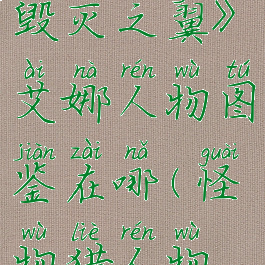 毁灭之翼》
ài nà rén wù tú
艾娜人物图
jiàn zài nǎ guài
鉴在哪(怪
wù liè rén wù
物猎人物